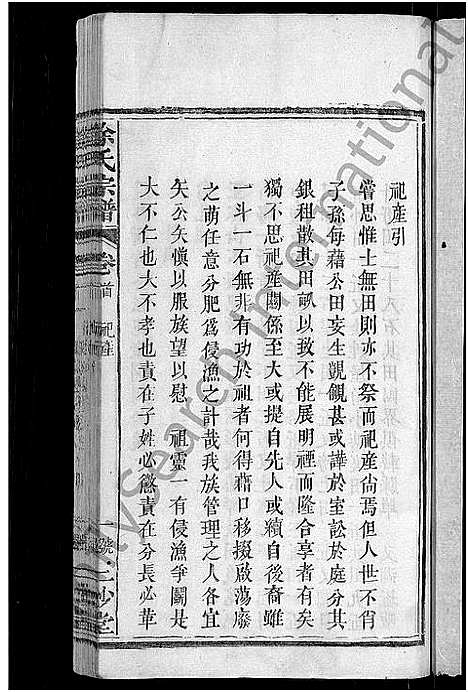 祀產引
嘗思惟士無田則亦不祭而祀產尙焉但人世不肖
子孫每藉公田妄生覬覦甚或譁於室訟於庭分其
銀租散其田畝以致不能展明禋而隆合享者有矣
獨不思祀產關係至大或提自先人或續自後裔雖
一斗一石無非有功於祖者何得藉口移掇啟蕩廢
之萌任意分肥爲侵漁之計哉我族管理之人各宜
矢公矢愼以服族望以慰 祖靈一有侵漁爭鬪是
大不仁也大不孝也責在子姓必懲責在分長必革
徐氏宗譜 卷首 祀產 一 三妙堂